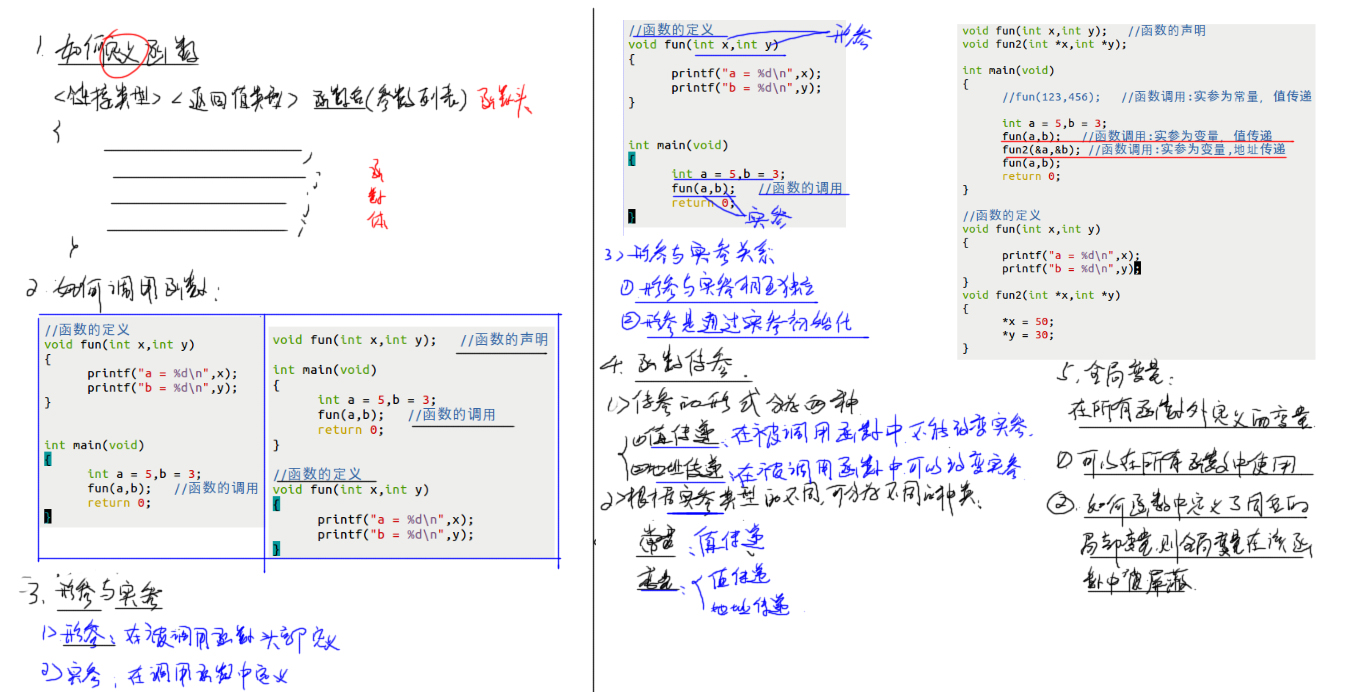 1. 如何定义函数
<链接类型> <返回值类型> 函数名(参数列表) 函数头
{
;
;
;
;
函数体
}
2. 如何调用函数:
//函数的定义
void fun(int x,int y)
{
printf("a = %d\n",x);
printf("b = %d\n",y);
}
int main(void)
{
int a = 5,b = 3;
fun(a,b); //函数的调用
return 0;
}
void fun(int x,int y); //函数的声明
int main(void)
{
int a = 5,b = 3;
fun(a,b); //函数的调用
return 0;
}
//函数的定义
void fun(int x,int y)
{
printf("a = %d\n",x);
printf("b = %d\n",y);
}
3. 形参与实参
1> 形参: 在被调用函数头部定义
2> 实参: 在调用函数中定义
//函数的定义
void fun(int x,int y) 形参
{
printf("a = %d\n",x);
printf("b = %d\n",y);
}
int main(void)
{
int a = 5,b = 3;
fun(a,b); //函数的调用
return 0;
}
实参
3> 形参与实参关系
① 形参与实参相互独立
② 形参是通过实参初始化
4. 函数传参.
1> 传参的形式分为两种
①值传递: 在被调用函数中不能改变实参.
②地址传递: 在被调用函数中可以改变实参
2> 根据实参类型的不同,可分为不同的种类.
常量: 值传递
变量: { 值传递
地址传递
void fun(int x,int y); //函数的声明
void fun2(int *x,int *y);
int main(void)
{
//fun(123,456); //函数调用:实参为常量, 值传递
int a = 5,b = 3;
fun(a,b); //函数调用:实参为变量, 值传递
fun2(&a,&b); //函数调用:实参为变量,地址传递
fun(a,b);
return 0;
}
//函数的定义
void fun(int x,int y)
{
printf("a = %d\n",x);
printf("b = %d\n",y);
}
void fun2(int *x,int *y)
{
*x = 50;
*y = 30;
}
5. 全局变量:
在所有函数外定义的变量
① 可以在所有函数中使用
②. 如何函数中定义了同名的
局部变量,则全局变量在该函
数中被屏蔽.